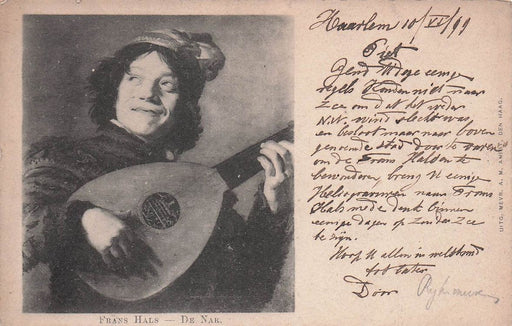 Haarlem 10/VI/99
Piet
regels konden niet naar
zee omdat het weder
N.W. wind slecht was
en besloot maar naar boven
genoemde stad door te varen
om de Frans Halsen te
bewonderen breng U eenige
naar Frans
Hals mede denk binnen
eenige dagen op Zuider Zee
te zijn.
Hoop U allen in welstand
tot later
Door
FRANS HALS — DE NAR.
UITG. MEVR. A. M. AMIOT, DEN HAAG.